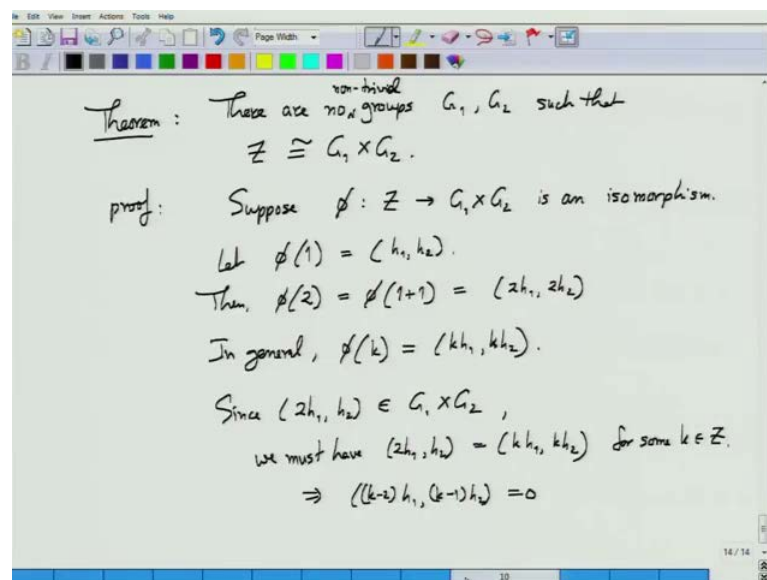 File Edit View Insert Actions Tools Help
Page Width
B I
Theorem : There are no non-trivial groups G₁, G₂ such that
Z ≅ G₁ × G₂.
proof: Suppose φ : Z → G₁ × G₂ is an isomorphism.
Let φ(1) = (h₁, h₂).
Then, φ(2) = φ(1+1) = (2h₁, 2h₂)
In general, φ(k) = (kh₁, kh₂).
Since (2h₁, h₂) ∈ G₁ × G₂ ,
we must have (2h₁, h₂) = (kh₁, kh₂) for some k ∈ Z.
⇒ ((k-2)h₁, (k-1)h₂) = 0
14 / 14
10